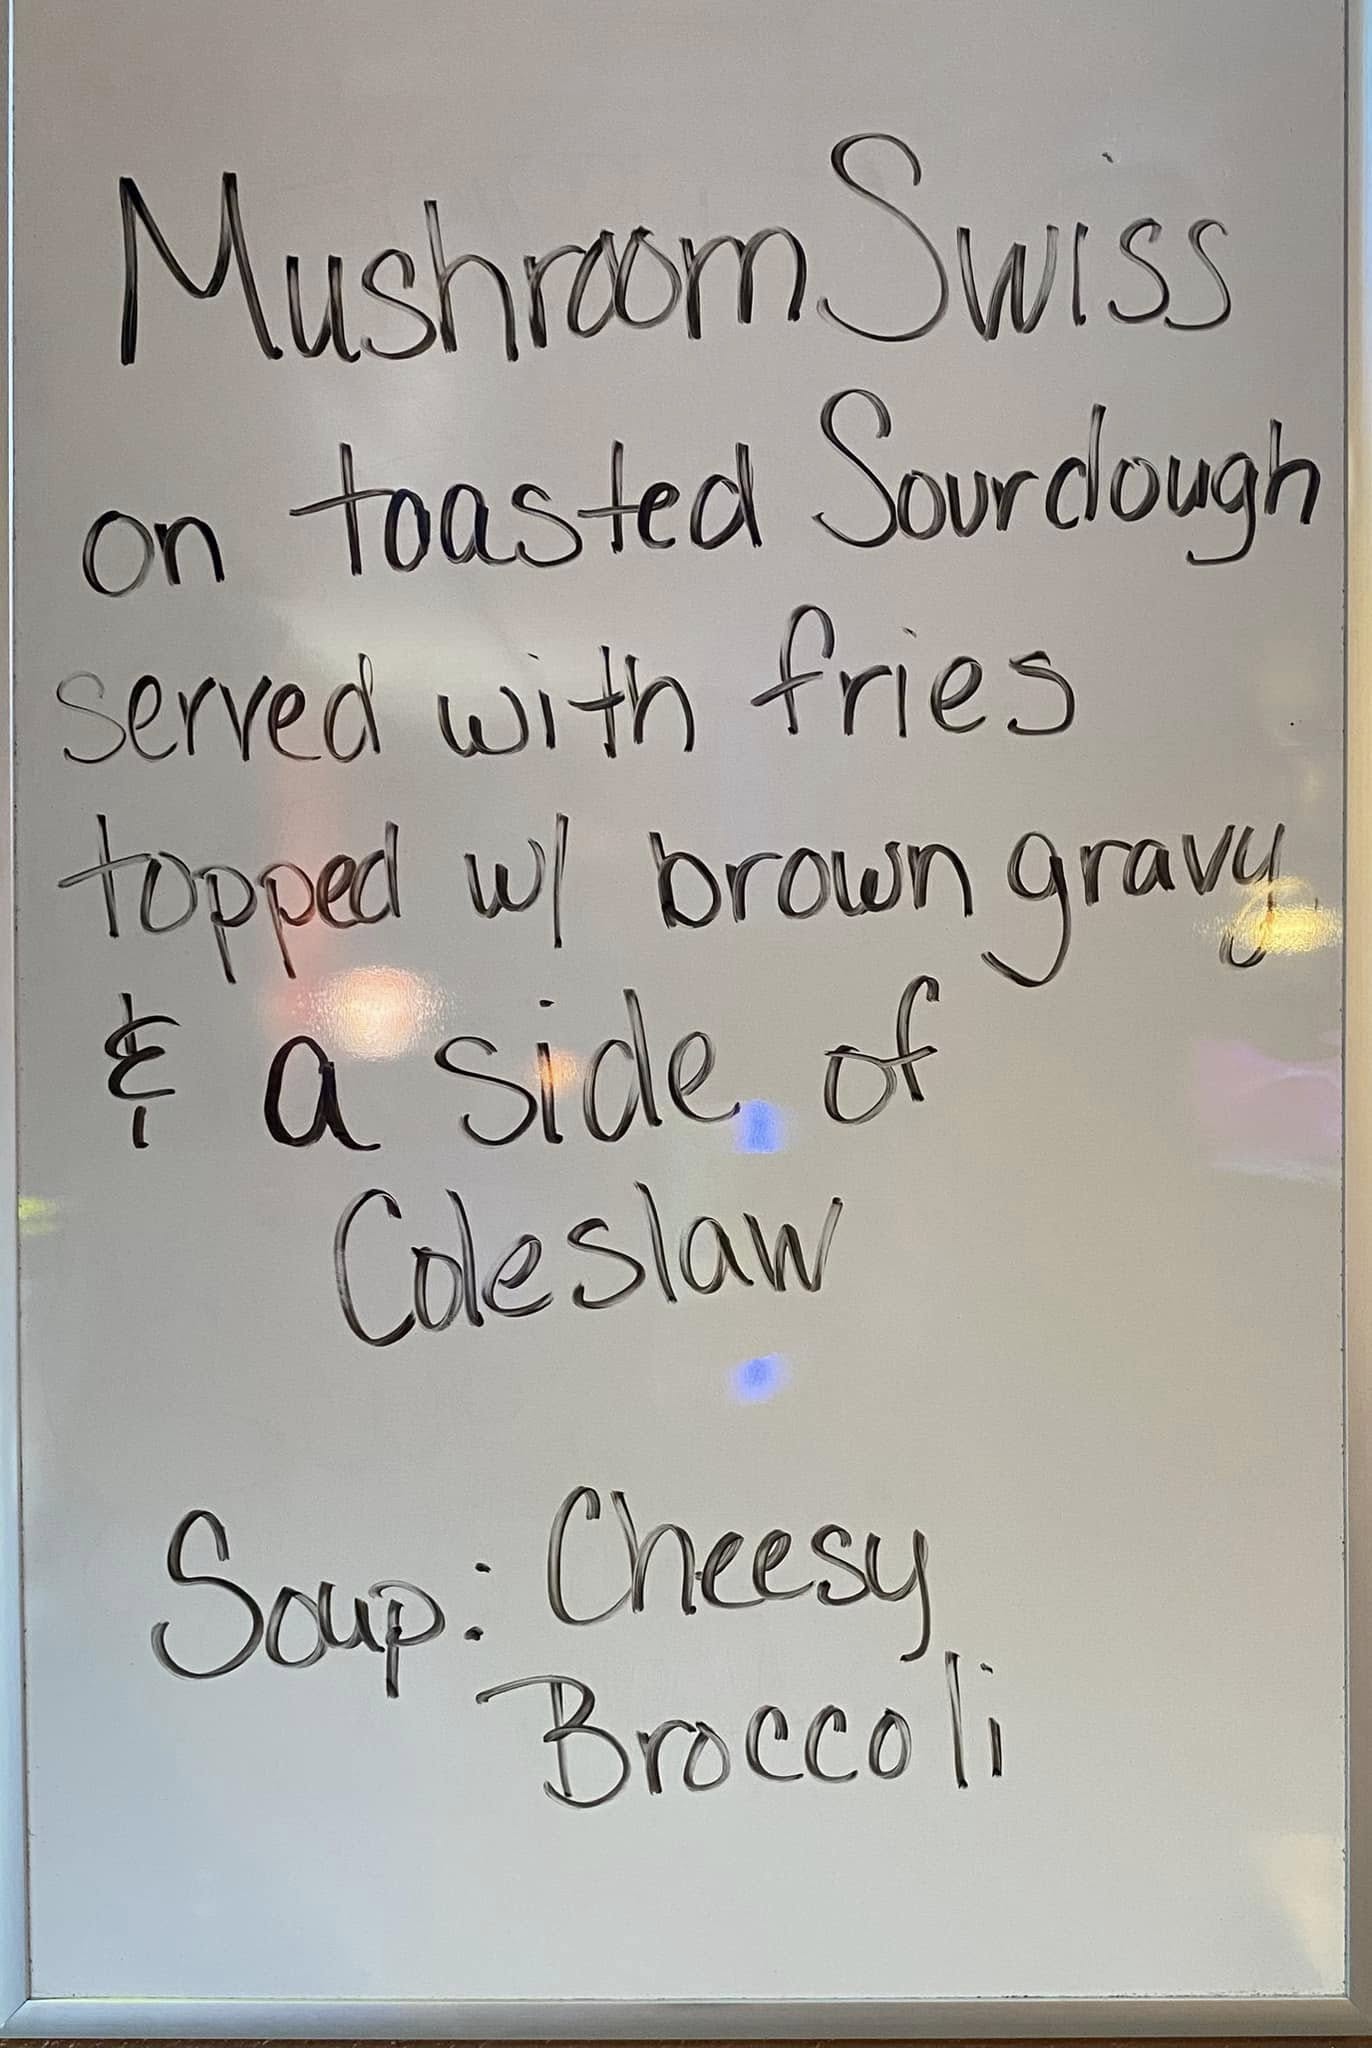 Mushroom Swiss
on toasted Sourdough
served with fries
topped w/ brown gravy
& a side of
Coleslaw
Soup: Cheesy
Broccoli